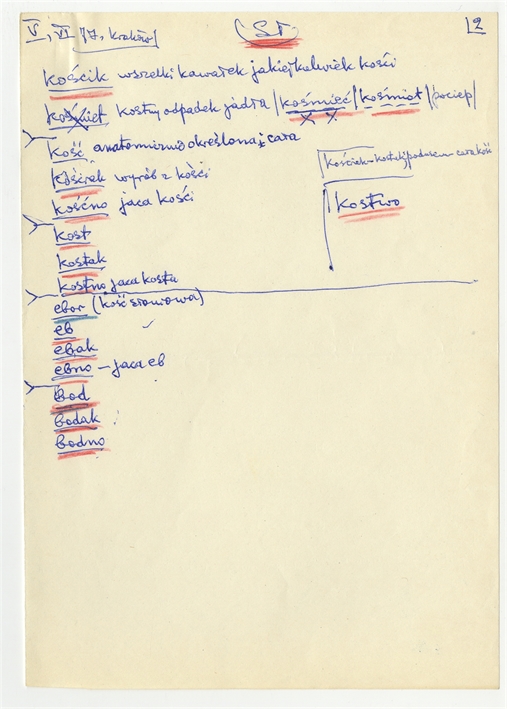 V, VI 77, Kraków ST 2
kościk wszelki kawałek jakiejkolwiek kości
kośmiet kostny odpadek jadła / kośmieć / kośmiot / pociep /
kość anatomicznie określona i cała
kościek wyrób z kości
kościek – kostek podasem – cała kość
kośćno jaca kości
kostwo
kost
kostak
kostno jaca kosta
ebor (kość słoniowa)
eb
ebak
ebno – jaca eb
bod
bodak
bodno